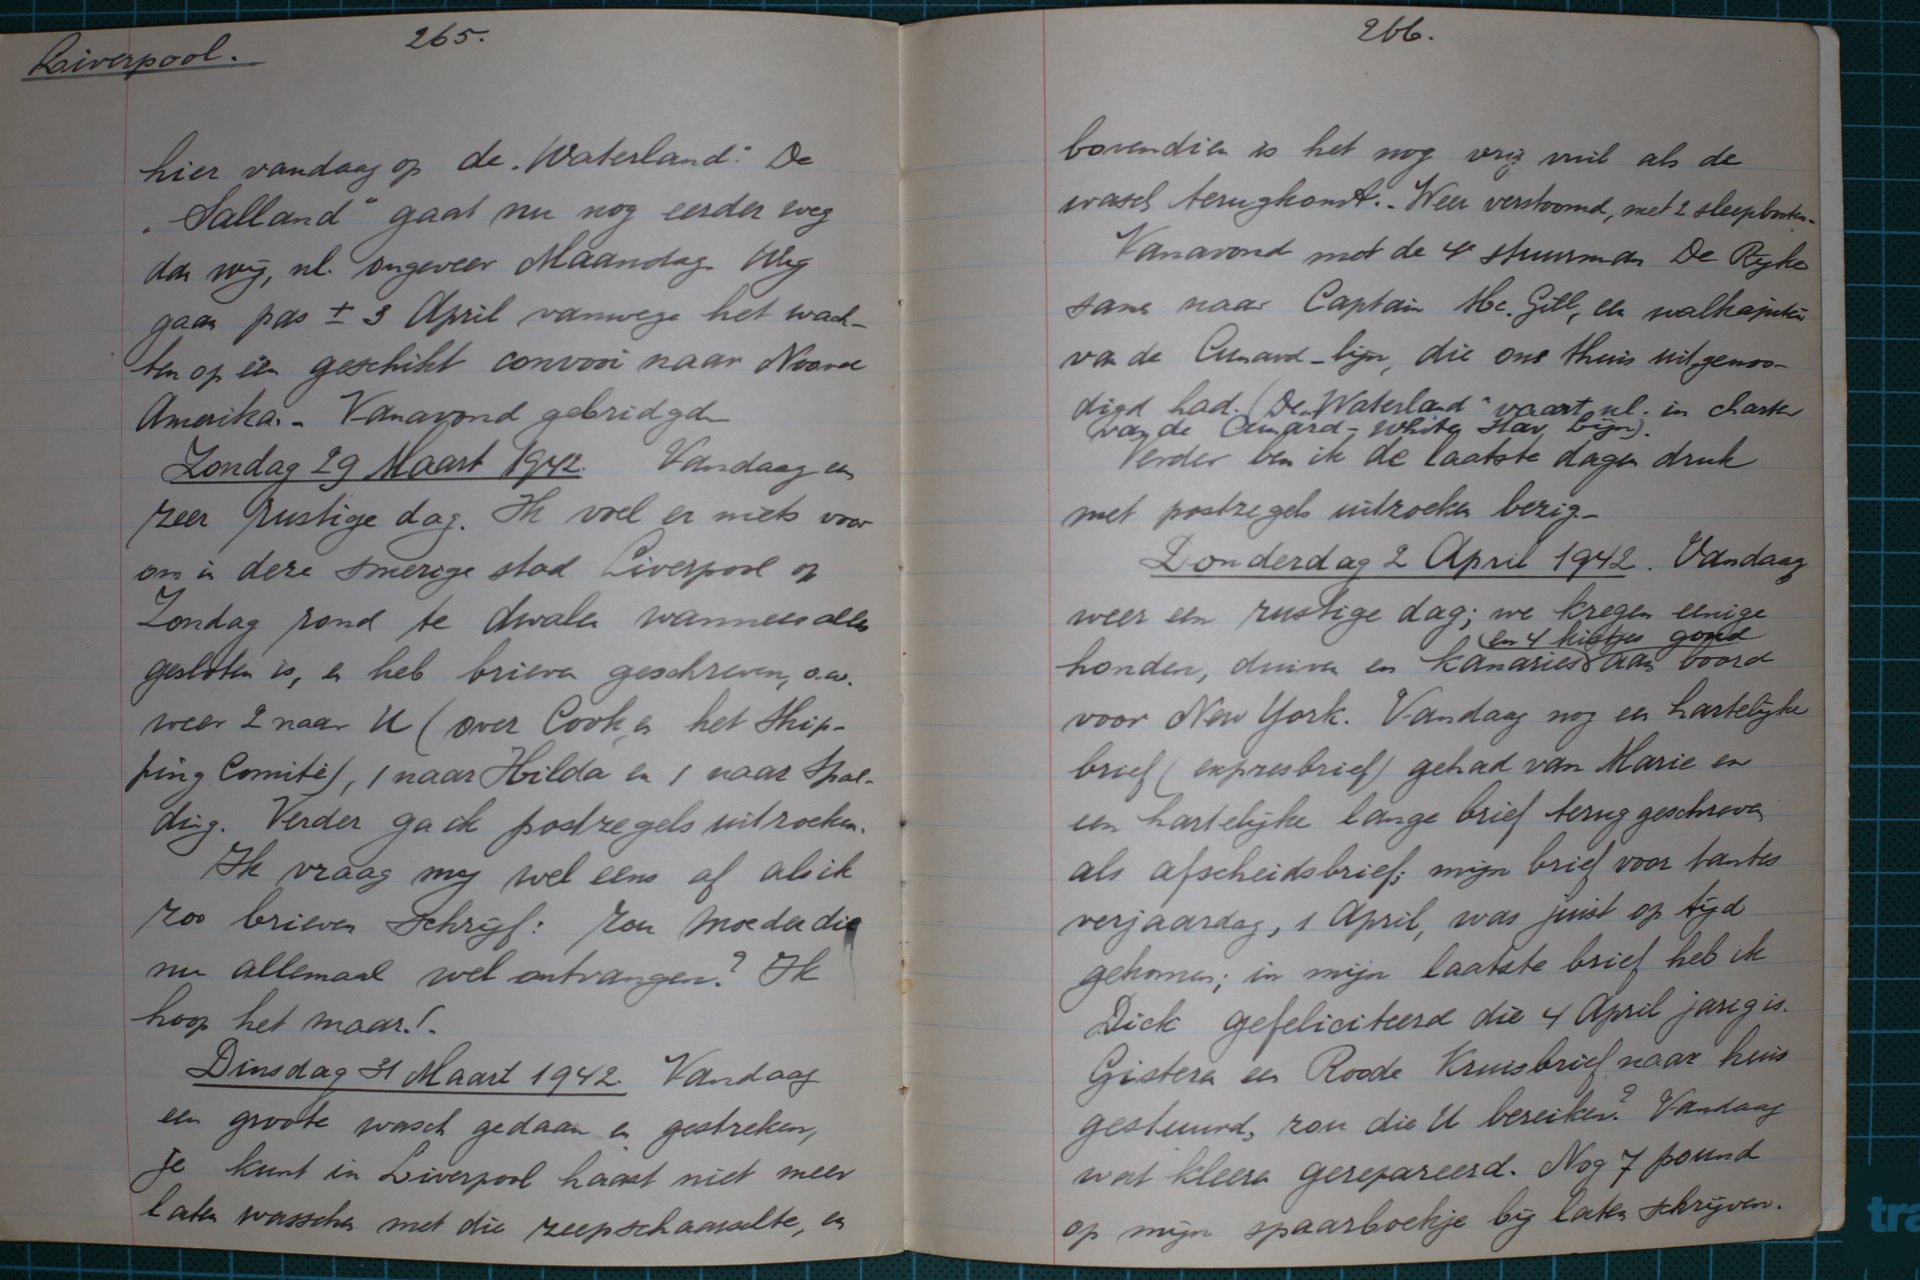 Liverpool.
265.
hier vandaag op de „Waterland". De
„Salland" gaat nu nog eerder weg
dan wij, nl. ongeveer Maandag. Wij
gaan pas ± 3 April vanwege het wach-
ten op een geschikt convooi naar Noord
Amerika. - Vanavond gebridged
Zondag 29 Maart 1942. Vandaag een
zeer rustige dag. Ik voel er niets voor
om in deze smerige stad Liverpool op
Zondag rond te dwalen wanneer alles
gesloten is, en heb brieven geschreven, o.a.
weer 2 naar U (over Cook en het Ship-
ping Comité), 1 naar Hilda en 1 naar Spal-
ding. Verder ga ik postzegels uitzoeken.
Ik vraag mij wel eens af als ik
zoo brieven schrijf: zou Moeder die
nu allemaal wel ontvangen? Ik
hoop het maar!.
Dinsdag 31 Maart 1942. Vandaag
een groote wasch gedaan en gestreken,
je kunt in Liverpool haast niet meer
laten wasschen met die zeepschaarschte, en
266.
bovendien is het nog vrij vuil als de
wasch terugkomt. - Weer verstoomd, met 2 sleepbooten. -
Vanavond met de 4e stuurman De Rijke
sans naar Captain Mc. Gill, een walkapitein
van de Cunard-lijn, die ons thuis uitgenoo-
digd had. (De „Waterland" vaart nl. in charter
van de Cunard-White Star Lijn).
Verder ben ik de laatste dagen druk
met postzegels uitzoeken bezig -
Donderdag 2 April 1942. Vandaag
weer een rustige dag; we kregen eenige
(en 4 kistjes goud
honden, duiven en kanaries) aan boord
voor New York. Vandaag nog een hartelijke
brief (expresbrief) gehad van Marie en
een hartelijke lange brief teruggeschreven
als afscheidsbrief; mijn brief voor tantes
verjaardag, 1 April, was juist op tijd
gekomen; in mijn laatste brief heb ik
Dick gefeliciteerd die 4 April jarig is.
Gisteren een Roode Kruisbrief naar huis
gestuurd, zou die U bereiken? Vandaag
wat kleeren gerepareerd. Nog 7 pound
op mijn spaarboekje bij laten schrijven.
tra